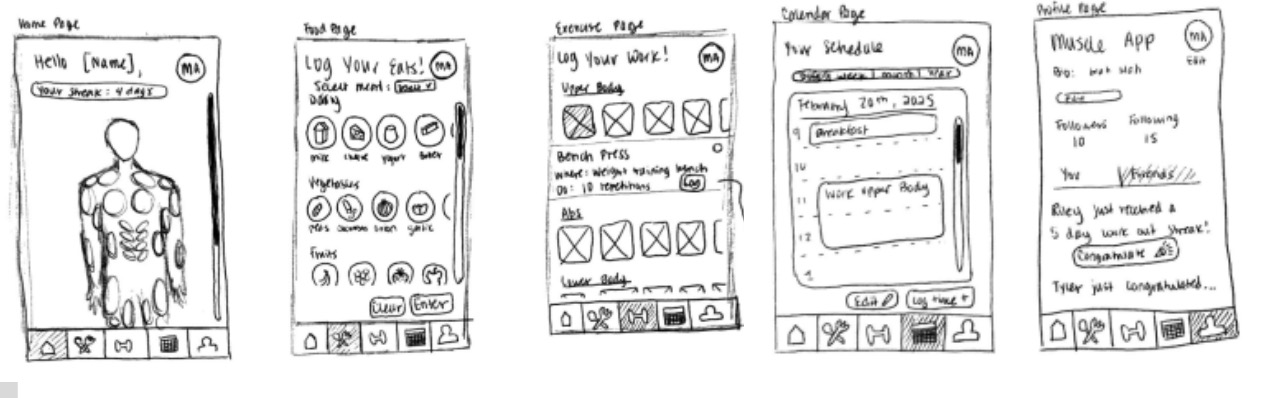 Home Page
Hello [Name],
MA
Your streak: 4 days
Food Page
Log Your Eats!
MA
Select meal:
Dairy
milk cheese yogurt butter
Vegetables
peas onion garlic
Fruits
Clear Enter
Exercise Page
Log Your Work!
MA
Upper Body
Bench Press
Where: Weight training bench
Do: 10 repetitions
Log
Abs
Lower Body
Calendar Page
Your Schedule
MA
week | month | Year
February 20th, 2025
9 Breakfast
10
11 Work upper Body
12
1
Edit Log time +
Profile Page
Muscle App
MA
Edit
Bio: blah blah
Edit
Followers Following
10 15
You Friends
Riley just received a
5 day work out streak!
Congratulate
Tyler just congratulated...